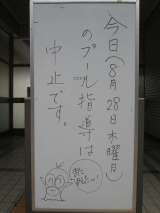 今日(8月28日木曜日)
のプール指導は
中止です。